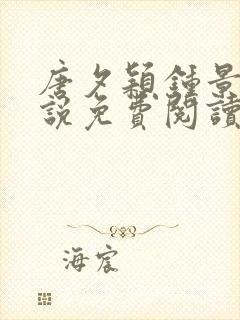 唐夕穎鍾景
說免費閱讀
海宸